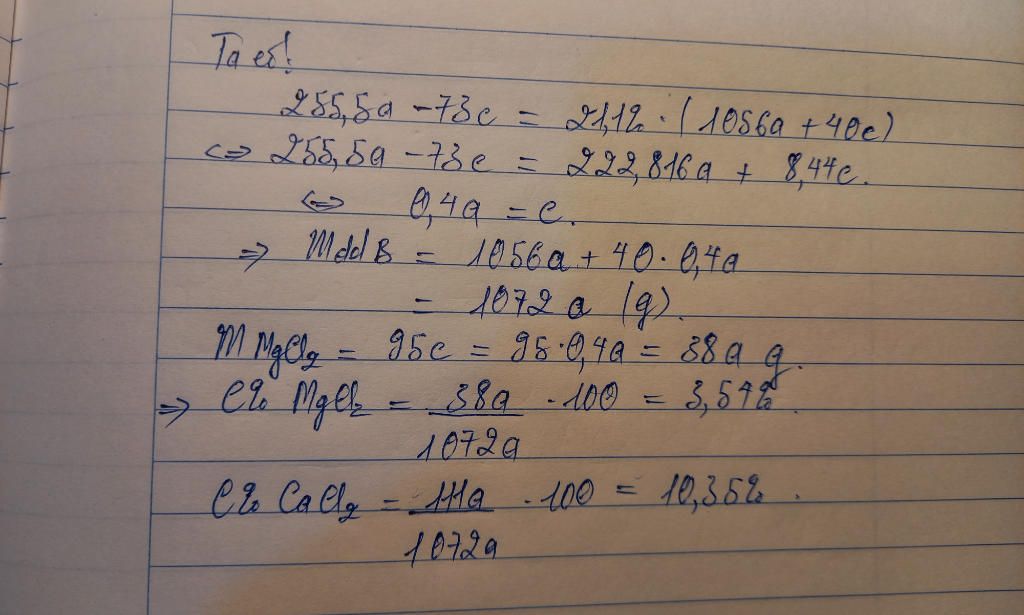 Ta có:
255,5a - 73c = 21,1% · (1056a + 40c)
<=> 255,5a - 73c = 222,816a + 8,44c.
<=> 0,4a = c.
=> mdd B = 1056a + 40 · 0,4a
= 1072a (g).
m MgCl2 = 95c = 95·0,4a = 38a g.
=> C% MgCl2 = 38a / 1072a · 100 = 3,54%.
C% CaCl2 = 111a / 1072a · 100 = 10,35%.